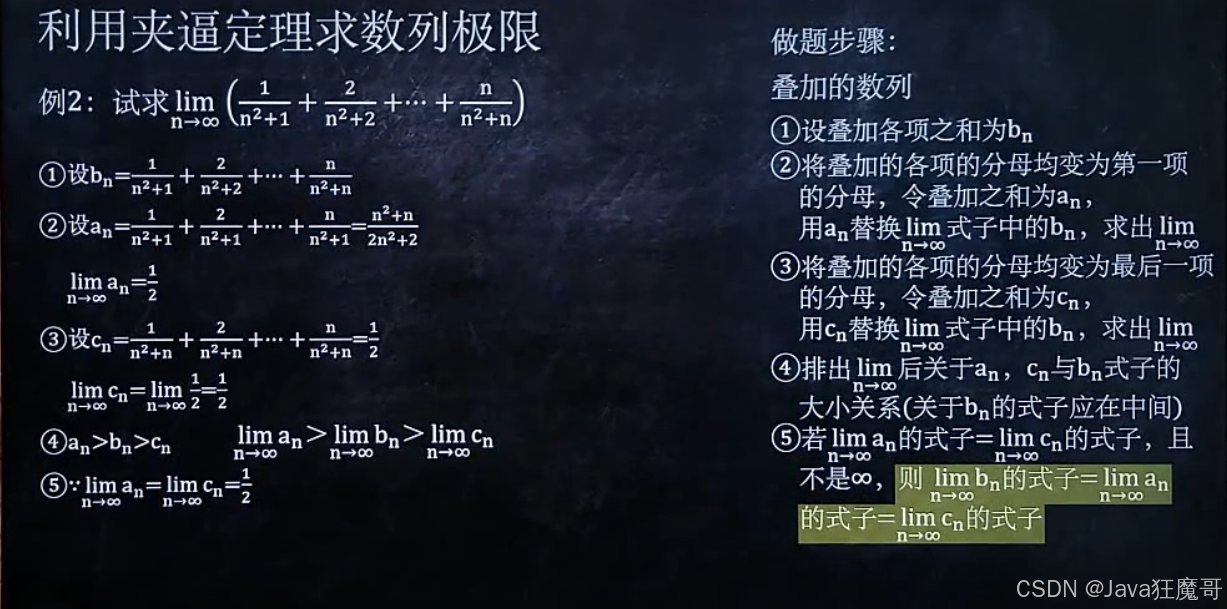 利用夹逼定理求数列极限
例2：试求lim n→∞ (1/(n²+1) + 2/(n²+2) +⋯+ n/(n²+n))
①设bₙ=1/(n²+1) + 2/(n²+2) +⋯+ n/(n²+n)
②设aₙ=1/(n²+1) + 2/(n²+1) +⋯+ n/(n²+1)=(n²+n)/(2n²+2)
lim n→∞ aₙ=1/2
③设cₙ=1/(n²+n) + 2/(n²+n) +⋯+ n/(n²+n)=1/2
lim n→∞ cₙ=lim n→∞ 1/2=1/2
④aₙ>bₙ>cₙ lim n→∞ aₙ>lim n→∞ bₙ>lim n→∞ cₙ
⑤∵lim n→∞ aₙ=lim n→∞ cₙ=1/2
做题步骤：
叠加的数列
①设叠加各项之和为bₙ
②将叠加的各项的分母均变为第一项
的分母，令叠加之和为aₙ，
用aₙ替换lim n→∞ 式子中的bₙ，求出lim n→∞
③将叠加的各项的分母均变为最后一项
的分母，令叠加之和为cₙ，
用cₙ替换lim n→∞ 式子中的bₙ，求出lim n→∞
④排出lim n→∞ 后关于aₙ，cₙ与bₙ式子的
大小关系(关于bₙ的式子应在中间)
⑤若lim n→∞ aₙ的式子=lim n→∞ cₙ的式子，且
不是∞，则 lim n→∞ bₙ的式子=lim n→∞ aₙ
的式子=lim n→∞ cₙ的式子
CSDN @Java狂魔哥